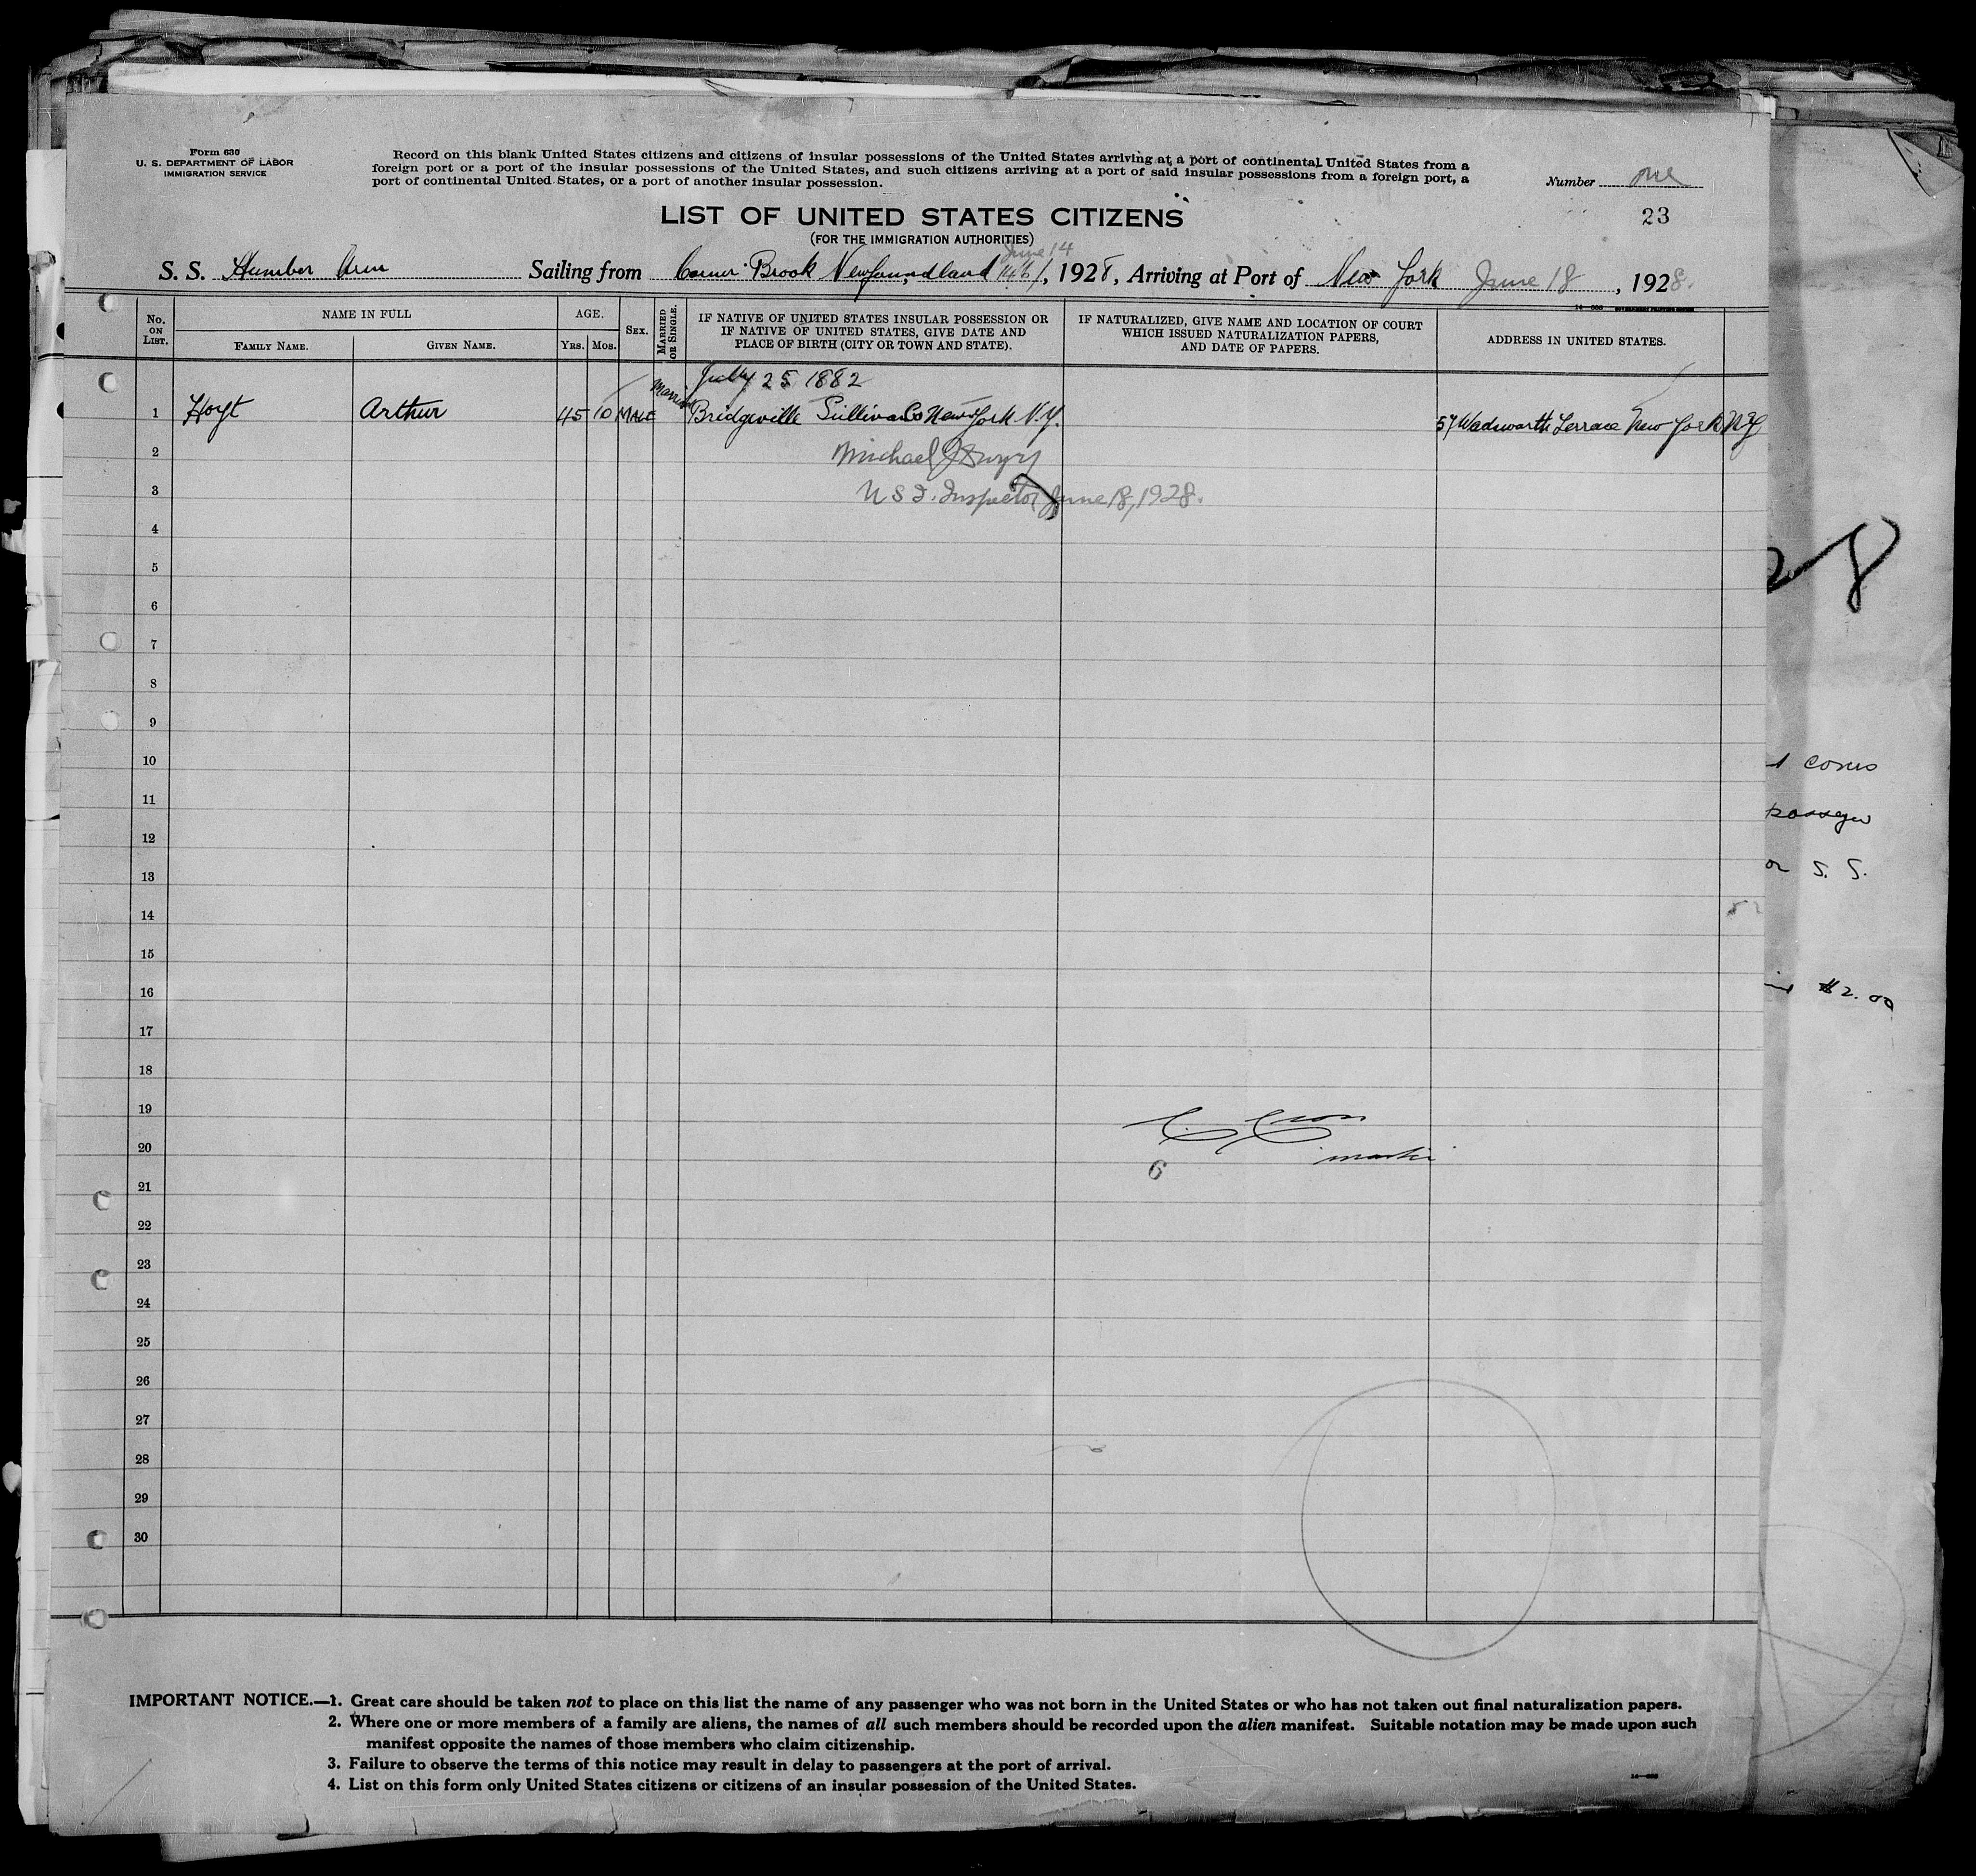 Form 630
U. S. DEPARTMENT OF LABOR
IMMIGRATION SERVICE
Record on this blank United States citizens and citizens of insular possessions of the United States arriving at a port of continental United States from a
foreign port or a port of the insular possessions of the United States, and such citizens arriving at a port of said insular possessions from a foreign port, a
port of continental United States, or a port of another insular possession.
Number one
23
LIST OF UNITED STATES CITIZENS
(FOR THE IMMIGRATION AUTHORITIES)
June 14
S. S. Humber Arm Sailing from Corner Brook Newfoundland, 14th, 1928, Arriving at Port of New York June 18, 1928.
No. ON LIST.
NAME IN FULL
FAMILY NAME.
GIVEN NAME.
AGE.
YRS.
MOS.
SEX.
MARRIED OR SINGLE.
IF NATIVE OF UNITED STATES INSULAR POSSESSION OR
IF NATIVE OF UNITED STATES, GIVE DATE AND
PLACE OF BIRTH (CITY OR TOWN AND STATE).
IF NATURALIZED, GIVE NAME AND LOCATION OF COURT
WHICH ISSUED NATURALIZATION PAPERS,
AND DATE OF PAPERS.
ADDRESS IN UNITED STATES.
July 25 1882
1 Hoyt Arthur 45 10 MALE Married Bridgeville Sullivan Co New York N.Y. 57 Wadsworth Terrace New York NY
2 Michael J Dwyer
3 U S I. Inspector June 18, 1928.
4
5
6
7
8
9
10
11
12
13
14
15
16
17
18
19
20
6
21
22
23
24
25
26
27
28
29
30
28
or S. S.
$2.00
IMPORTANT NOTICE.—1. Great care should be taken not to place on this list the name of any passenger who was not born in the United States or who has not taken out final naturalization papers.
2. Where one or more members of a family are aliens, the names of all such members should be recorded upon the alien manifest. Suitable notation may be made upon such
manifest opposite the names of those members who claim citizenship.
3. Failure to observe the terms of this notice may result in delay to passengers at the port of arrival.
4. List on this form only United States citizens or citizens of an insular possession of the United States.